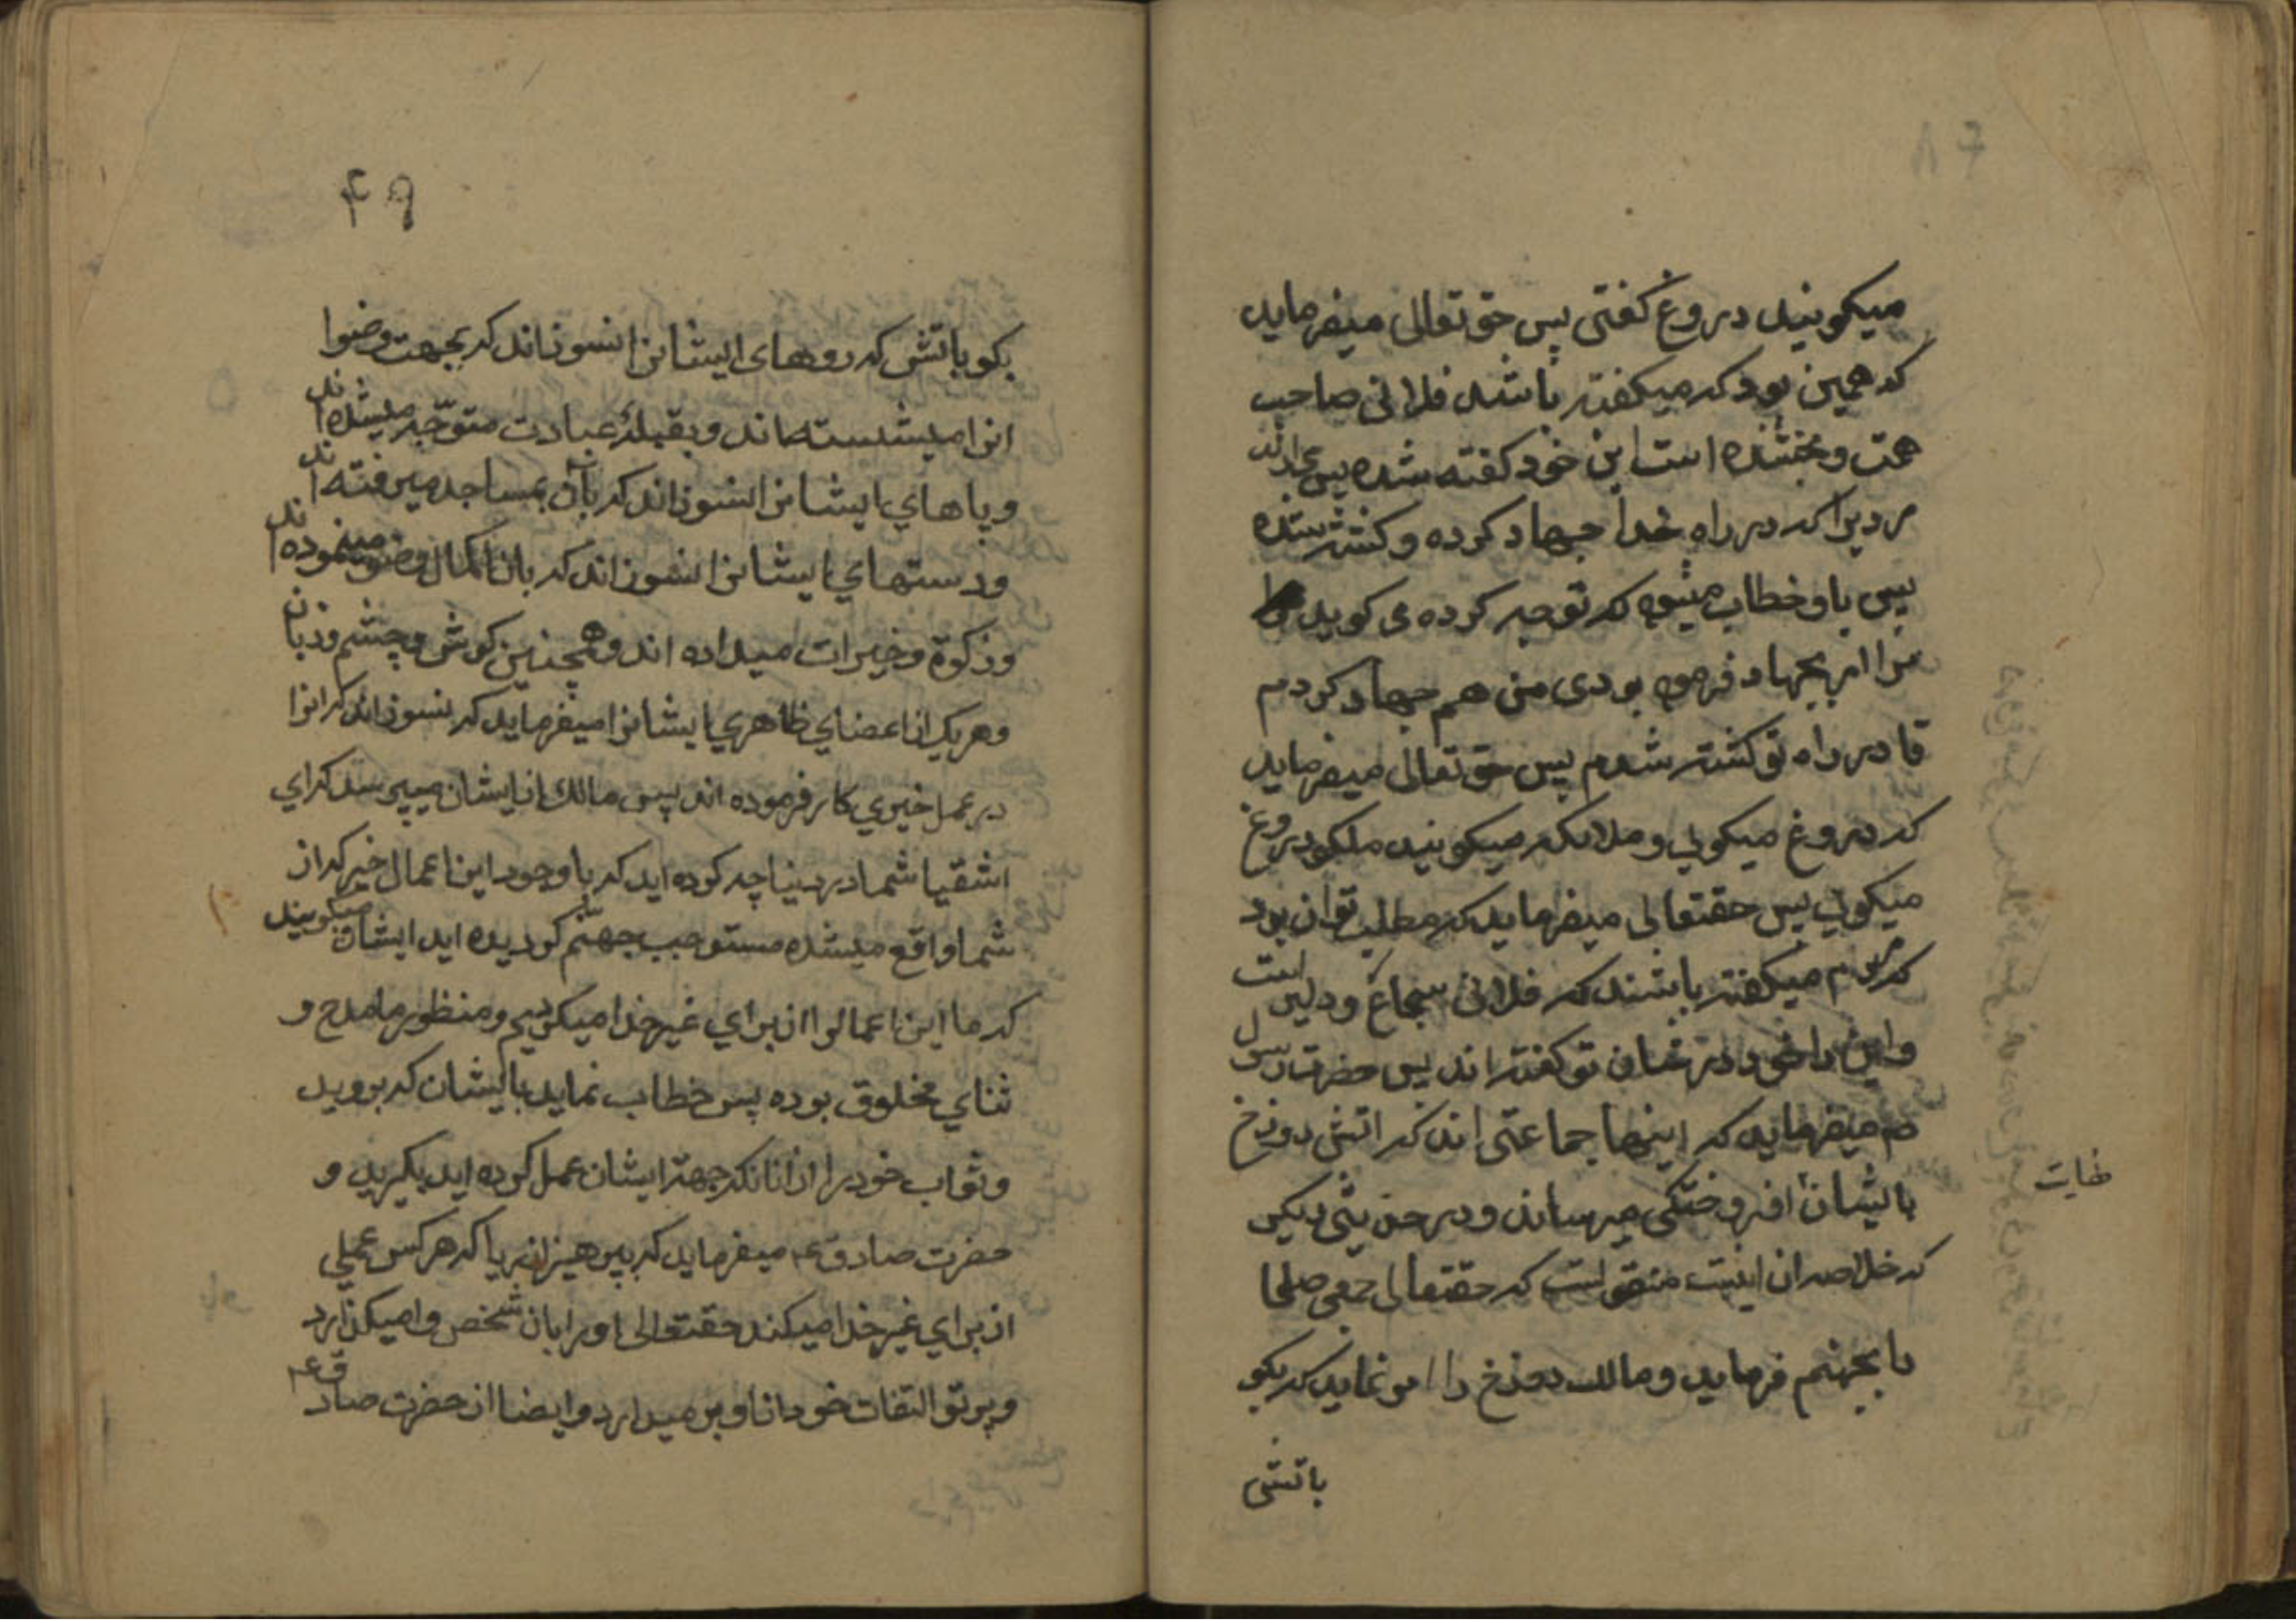 میکویند دروغ کفتی پس حق تعالی میفرماید
که همین بود که میکفته باشند فلانی صاحب
همت و بخشنده است این خود کفته شده پس
مردیرا که در راه خدا جهاد کرده و کشته شده
پس باو خطاب میشود که توجه کرده می کوید
مرا امر بجهاد فرموده بودی من هم جهاد کردم
تا در راه تو کشته شدم پس حق تعالی میفرماید
که دروغ میکویی و ملائکه میکویند دروغ
میکویی پس حقتعالی میفرماید که مطلب تو ان بود
که مردم میکفته باشند که فلانی شجاع و دلیر است
واین را خود در شان تو کفته اند پس حضرت رسول
صم میفرماید که اینها جماعتی اند که اتش دوزخ
بایشان افروختکی میرساند و در حدیثی دیکر
که خلاصه ان اینست منقولست که حقتعالی جمعی صلحا
را بجهنم فرماید و مالک دوزخ را امر نماید که بکو
باتش
۴۹
بکو باتش که روهای ایشانرا نسوزاند که بجهت وضوا
انرا میشسته اند و بقبله عبادت متوجه میشده اند
و پاهاي ایشانرا نسوزاند که بآن بمساجد میرفته اند
و دستهاي ایشانرا نسوزاند که بان اکمال وضو مینموده اند
و زکوة و خیرات میداده اند و همچنین کوش و چشم و زبان
و هریک از اعضاي ظاهري ایشانرا میفرماید که نسوزاند که انرا
در عمل خیري کار فرموده اند پس مالک از ایشان میپرسد که اي
اشقیا شما در دنیا چه کرده اید که با وجود این اعمال خیر که از
شما واقع میشده مستوجب جهنم کردیده اید ایشان میکویند
که ما این اعمالرا از براي غیر خدا میکردیم و منظور ما مدح و
ثناي مخلوق بوده پس خطاب نماید بایشان که بروید
و ثواب خود را از انانکه جهة ایشان عمل کرده اید بکیرید و
حضرت صادق عم میفرماید که بپرهیز از ریا که هر کس عملي
از براي غیر خدا میکند حقتعالی او را بان شخص وامیکذارد
و پرتو التفات خود از او بر میدارد و ایضا از حضرت صادق عم